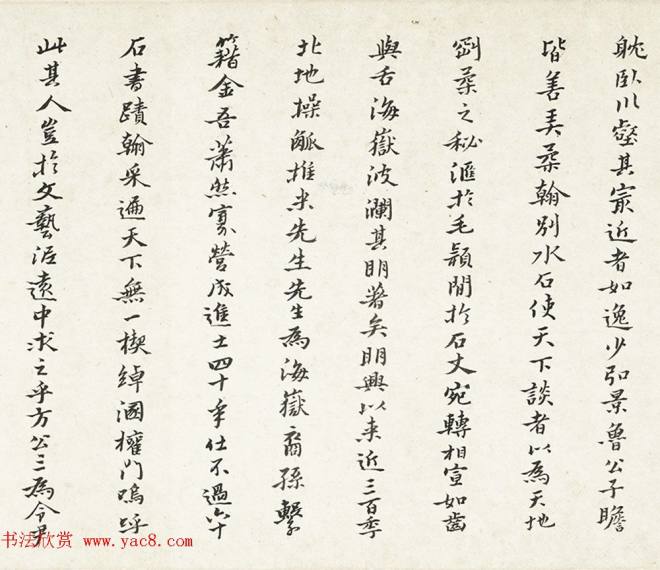 躭臥川壑其最近者如逸少弘景魯公子瞻
皆善美柔翰別水石使天下談者以為天地
剛柔之秘滙於毛穎閒於石丈宛轉相宣如齒
與舌海嶽波瀾其朙著矣朙興以来近三百季
北地操觚推米先生先生為海嶽裔孫繫
籍金吾蕭然寡營成進士四十年仕不過六十
石書蹟翰采遍天下無一楔綽溷權門嗚呼
此其人豈於文藝泝遠中求之乎方公三為令尹
书法欣赏 www.yac8.com